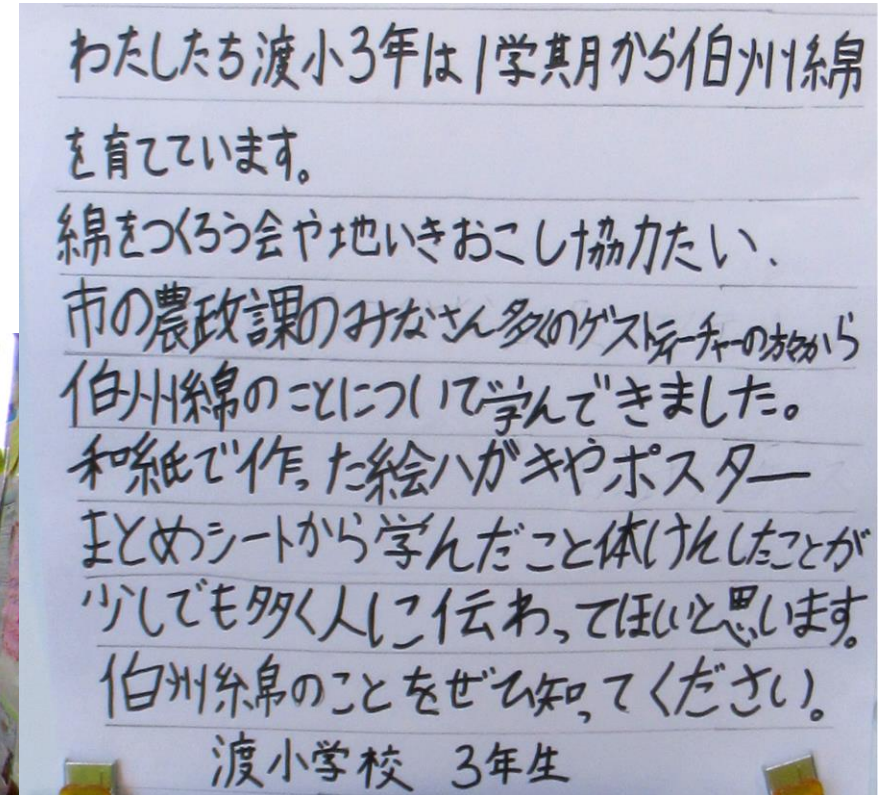 わたしたち渡小3年は1学期から伯州綿
を育てています。
綿をつくろう会や地いきおこし協力たい、
市の農政課のみなさん多くのゲストティーチャーの方々から
伯州綿のことについて学んできました。
和紙で作った絵ハガキやポスター
まとめシートから学んだこと体けんしたことが
少しでも多く人に伝わってほしいと思います。
伯州綿のことをぜひ知ってください。
渡小学校 3年生